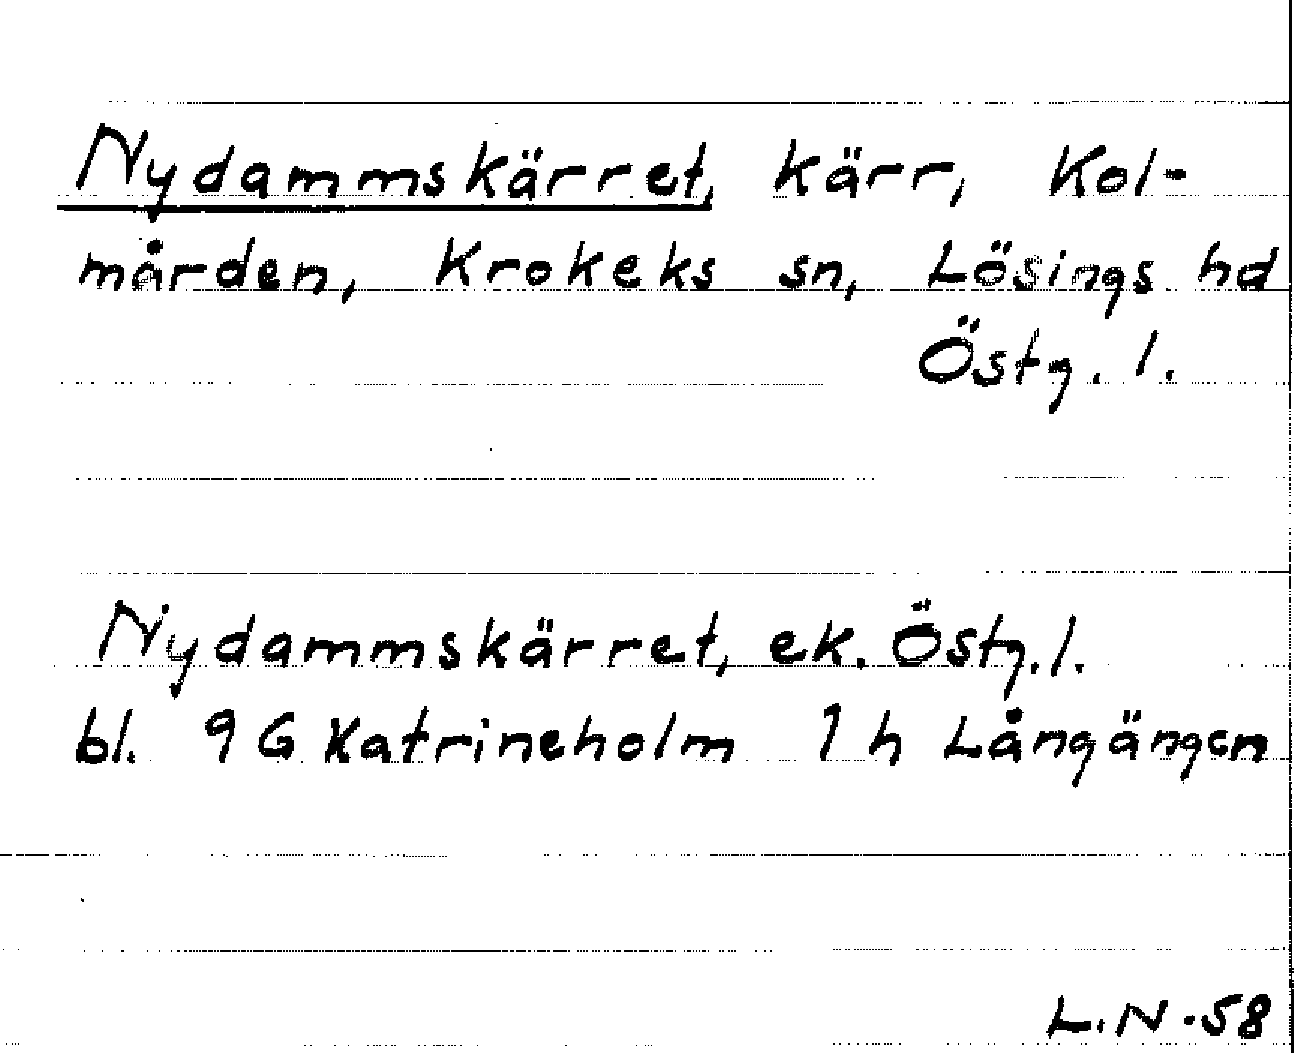 Nydammskärret, kärr, Kol-
mården, Krokeks sn, Lösings hd
Östg. l.
Nydammskärret, ek. Östg. l.
bl. 9 G Katrineholm 1 h Långängen
L.N.-58